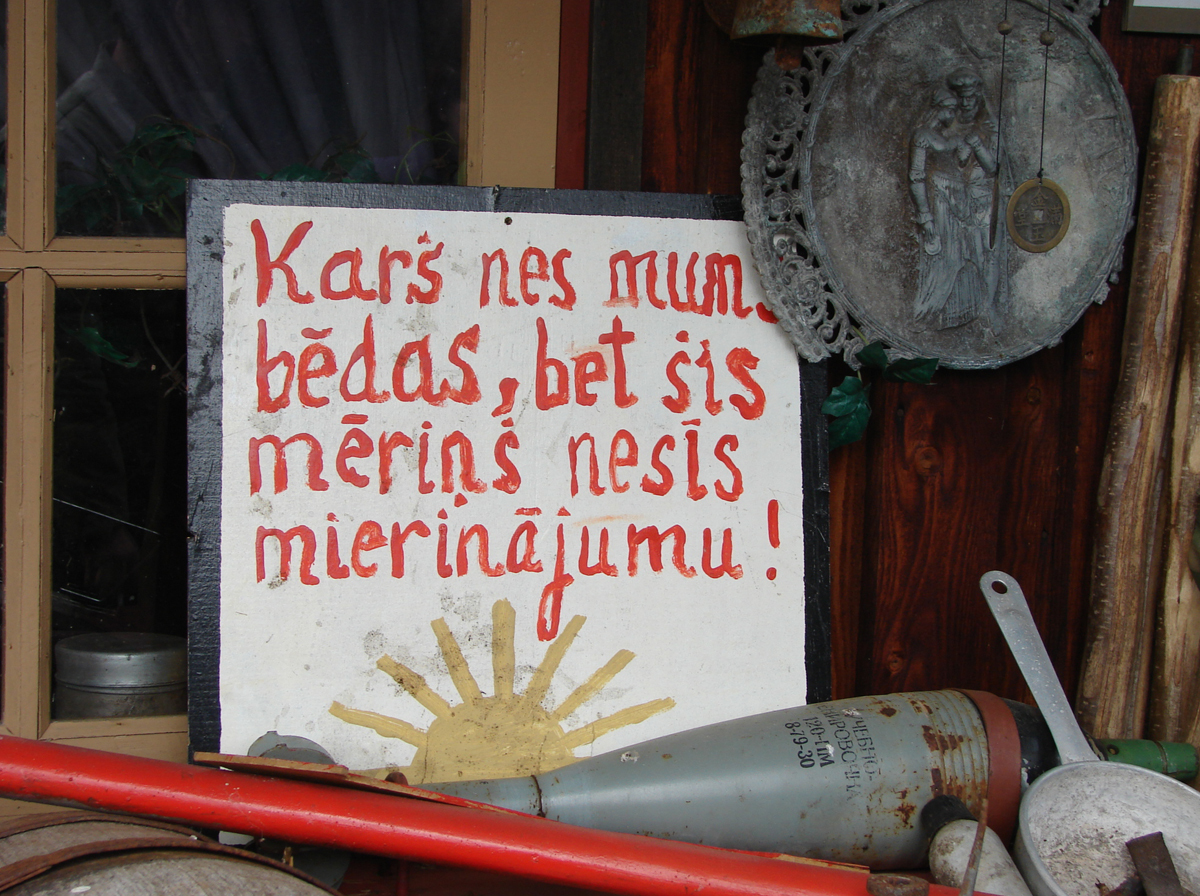 Karš nes mums
bēdas, bet šis
mēriņš nesīs
mieriņājumu!
120-ПМ
8/79-30